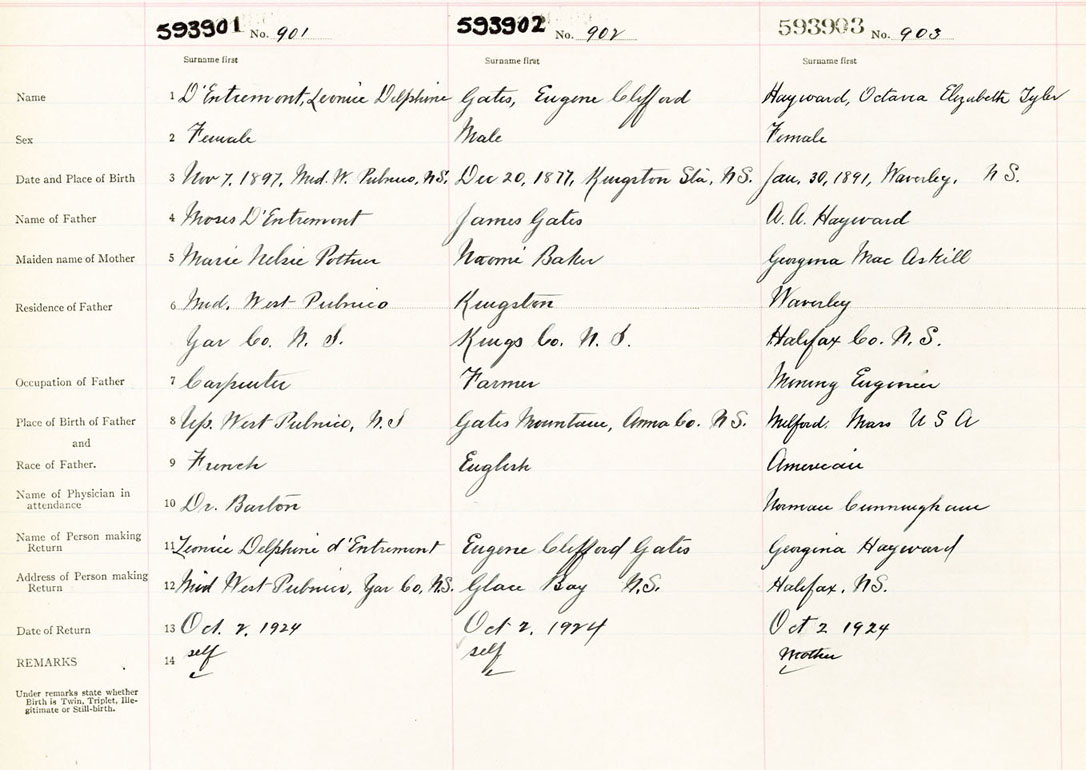 593901 No. 901 593902 No. 902 593903 No. 903
Surname first Surname first Surname first
Name 1 D'Entremont, Leonie Delphine Gates, Eugene Clifford Hayward, Octavia Elizabeth Tyler
Sex 2 Female Male Female
Date and Place of Birth 3 Nov 7, 1897, Mid. W. Pubnico, N.S. Dec 20, 1877, Kingston Sta, N.S. Jan, 30, 1891, Waverley, N S.
Name of Father 4 Moses D'Entremont James Gates A. A. Hayward
Maiden name of Mother 5 Marie Pothier Naomie Baker Georgina Mac Askill
Residence of Father 6 Mid. West Pubnico Kingston Waverley
Yar Co. N. S. Kings Co. N. S. Halifax Co. N. S.
Occupation of Father 7 Carpenter Farmer Mining Engineer
Place of Birth of Father 8 Up. West Pubnico, N.S Gates Mountain, Anna Co. N.S. Milford. Mass U S A
and
Race of Father. 9 French English American
Name of Physician in
attendance 10 Dr. Barton Norman Cunningham
Name of Person making
Return 11 Leonie Delphine d'Entremont Eugene Clifford Gates Georgina Hayward
Address of Person making
Return 12 Mid West Pubnico, Yar Co, N.S. Glace Bay N.S. Halifax, N.S.
Date of Return 13 Oct. 2, 1924 Oct 2, 1924 Oct 2 1924
REMARKS 14 self self Mother
Under remarks state whether
Birth is Twin, Triplet, Ille-
gitimate or Still-birth.